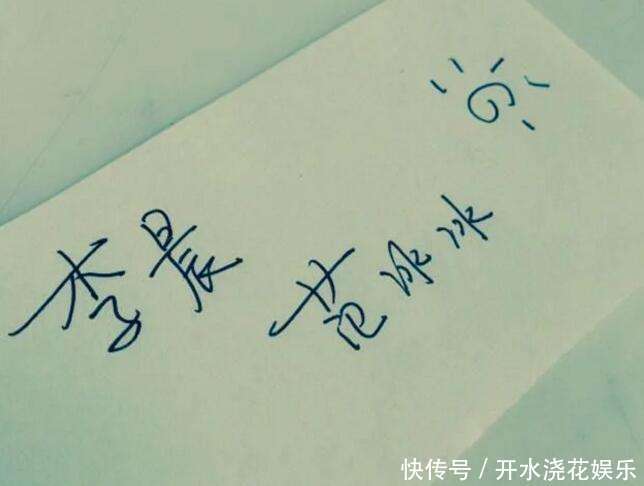 李晨
范冰冰
快传号/开水浇花娱乐